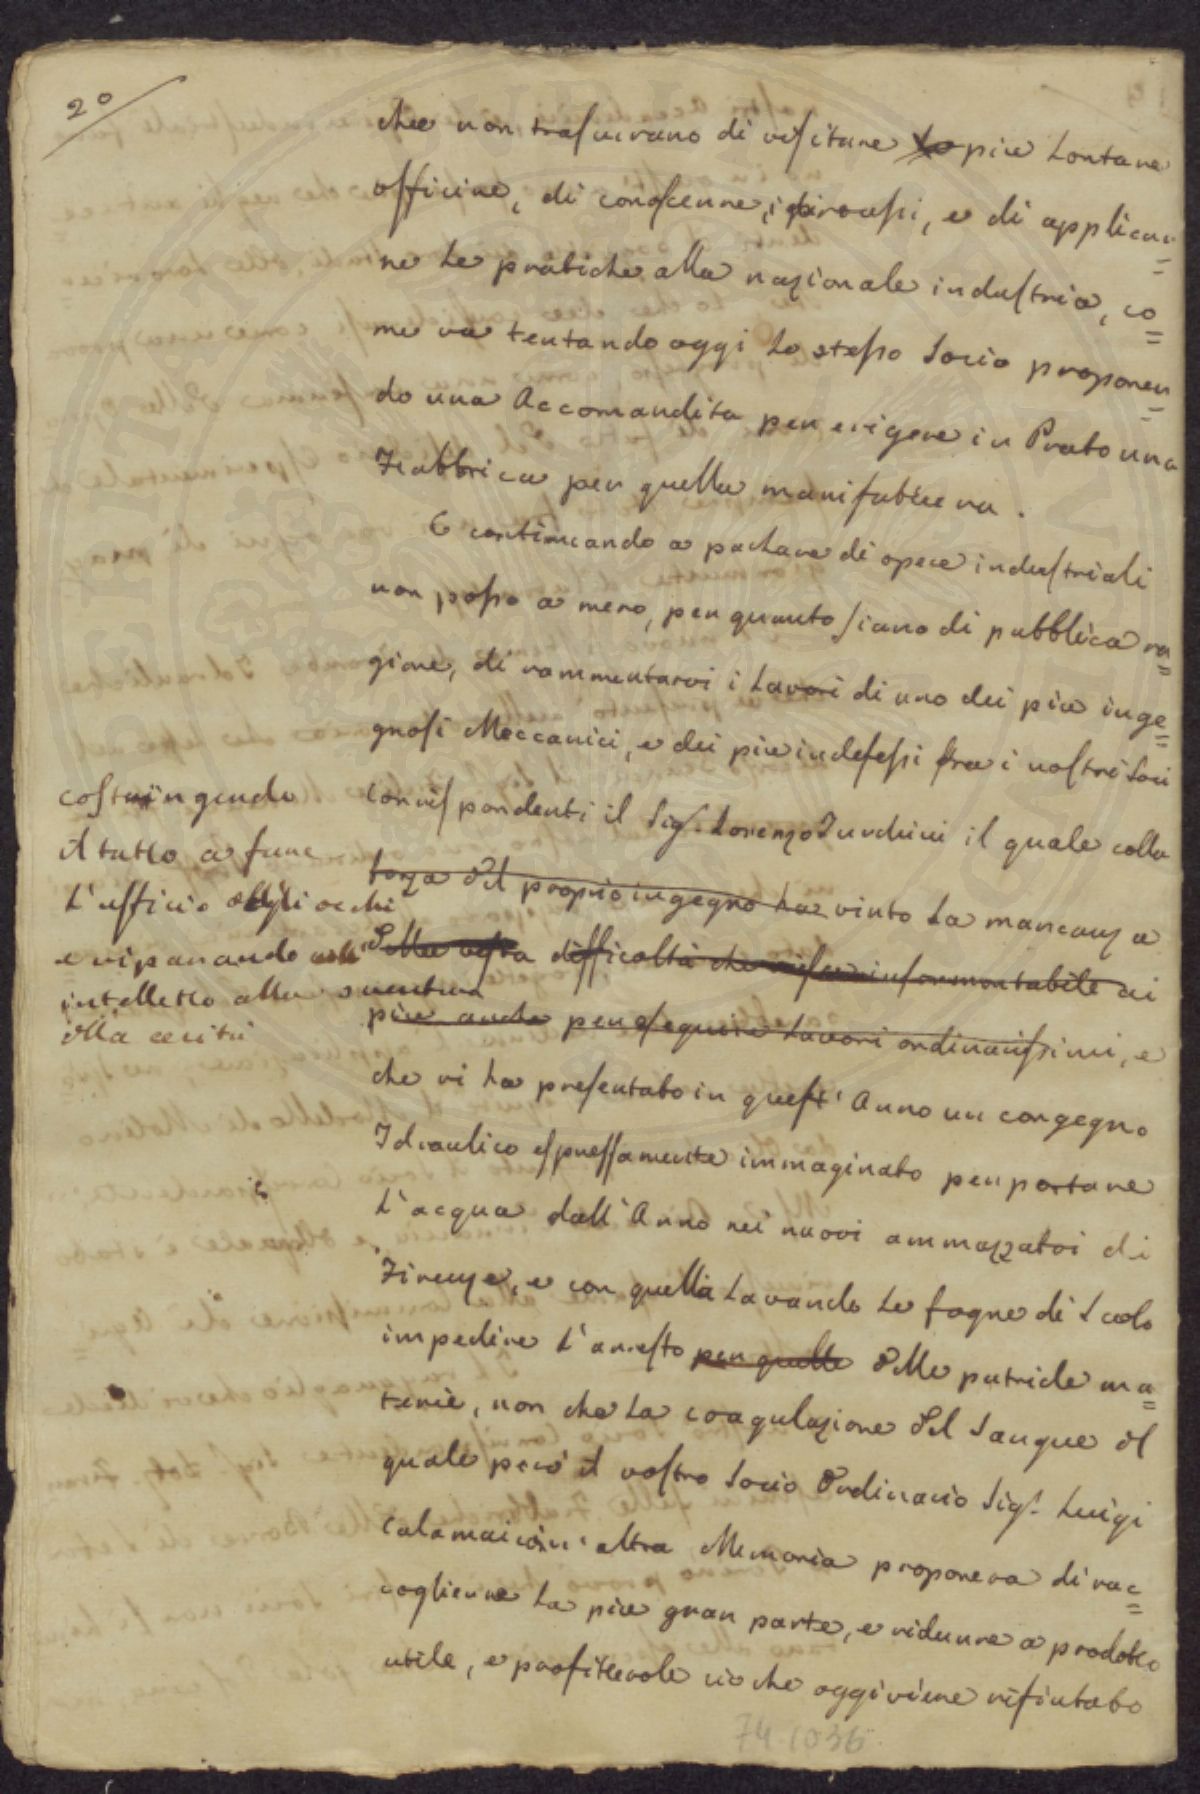 20
che non trascurano di visitare le più lontane
officine, di conoscerne, i processi, e di applicar=
ne le pratiche alla nazionale industria, co=
me va tentando oggi lo stesso Socio proponen=
do una Accomandita per erigere in Prato una
Fabbrica per quella manifattura.
E continuando a parlare di opere industriali
non posso a meno, per quanto siano di pubblica ra=
gione, di rammentarvi i lavori di uno dei più inge=
gnosi Meccanici, e dei più indefessi fra i nostri Soci
Corrispondenti il Sig.r Lorenzo Turchini il quale colla
forza del proprio ingegno ha vinto la mancanza
della vista difficoltà che insormontabile ai
più anche per eseguire lavori ordinarissimi, e
che vi ha presentato in quest'Anno un congegno
Idraulico espressamente immaginato per portare
l'acqua dall'Arno nei nuovi ammazzatoi di
Firenze, e con quella lavando le fogne di scolo
impedire l'arresto per quelle delle putride ma=
terie, non che la coagulazione del sangue il
quale però il vostro Socio Ordinario Sig.r Luigi
Calamai in altra Memoria proponeva di rac=
coglierne la più gran parte, e ridurre a prodotto
utile, e profittevole ciò che oggi viene rifiutato
costringendo
il tatto a fare
l'ufficio degli occhi
e riparando coll'
intelletto alla sventura
della cecità
74.1036